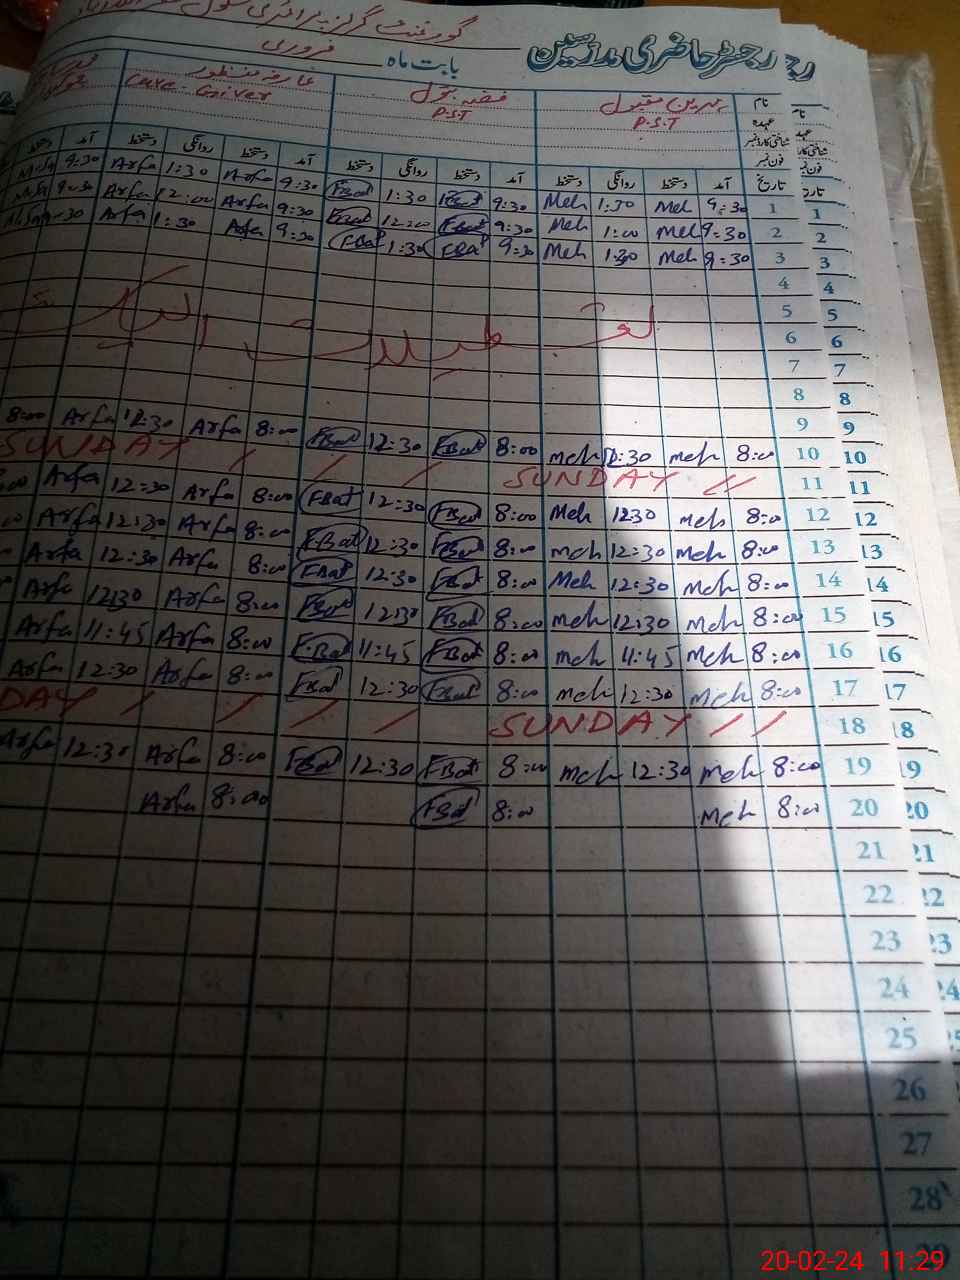 گورنمنٹ گرلز پرائمری سکول
رجسٹر حاضری مدرسین بابت ماہ فروری
نام مہرین مقبول فضہ بتول عارفہ منظور
عہدہ P.S.T P.S.T Care-Giver
شناختی کارڈ نمبر
فون نمبر
تاریخ آمد دستخط روانگی دستخط آمد دستخط روانگی دستخط آمد دستخط روانگی دستخط آمد
1 9:30 Meh 1:30 Meh 9:30 FBat 1:30 FBat 9:30 Arfa 1:30 Arfa 9:30
2 9:30 Meh 1:00 Meh 9:30 FBat 12:00 FBat 9:30 Arfa 12:00 Arfa 9:30
3 9:30 Meh 1:30 Meh 9:30 FBat 1:30 FBat 9:30 Arfa 1:30 Arfa
4
5
6 تعطیلات الیکشن
7
8
9
10 8:00 meh 12:30 meh 8:00 FBat 12:30 FBat 8:00 Arfa 12:30 Arfa 8:00
11 SUNDAY SUNDAY
12 8:00 meh 12:30 Meh 8:00 FBat 12:30 FBat 8:00 Arfa 12:30 Arfa
13 8:00 Meh 12:30 meh 8:00 FBat 12:30 FBat 8:00 Arfa 12:30 Arfa
14 8:00 Meh 12:30 Meh 8:00 FBat 12:30 FBat 8:00 Arfa 12:30 Arfa
15 8:00 meh 12:30 meh 8:00 FBat 12:30 FBat 8:00 Arfa 12:30 Arfa
16 8:00 Meh 11:45 meh 8:00 FBat 11:45 FBat 8:00 Arfa 11:45 Arfa
17 8:00 Meh 12:30 meh 8:00 FBat 12:30 FBat 8:00 Arfa 12:30 Arfa
18 SUNDAY DAY
19 8:00 meh 12:30 meh 8:00 FBat 12:30 FBat 8:00 Arfa 12:30 Arfa
20 8:00 Meh 8:00 FBat 8:00 Arfa
21
22
23
24
25
26
27
28
29
20-02-24 11:29